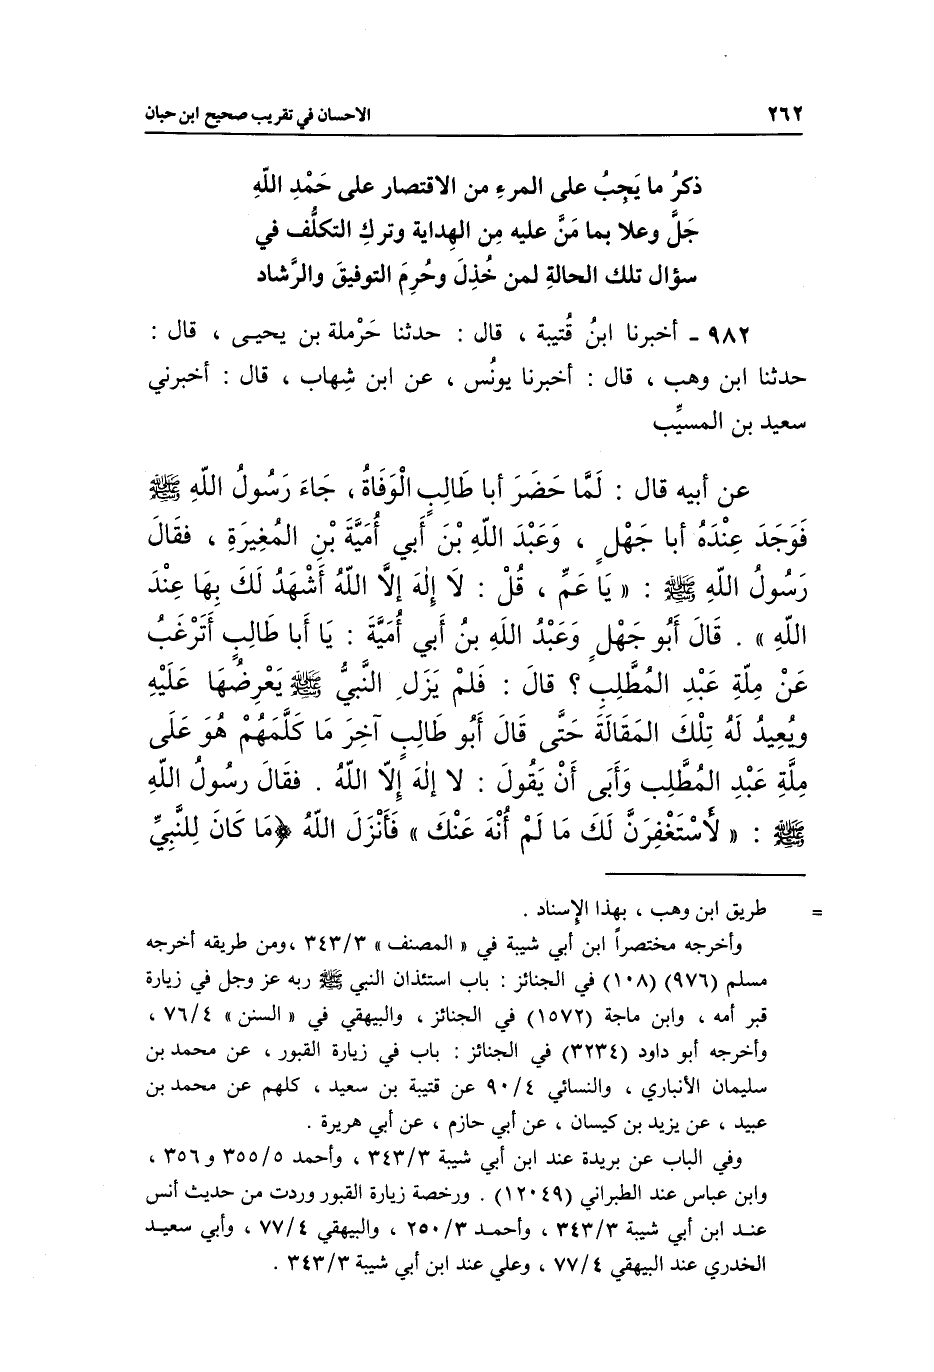 ٢٦٢ الاحسان في تقريب صحيح ابن حبان
ذكرُ ما يَجِبُ على المرءِ من الاقتصار على حَمْدِ اللّهِ
جَلَّ وعلا بما مَنَّ عليه مِن الهِداية وتركِ التكلُّف في
سؤال تلك الحالةِ لمن خُذِلَ وحُرِمَ التوفيقَ والرَّشاد
٩٨٢ - أخبرنا ابنُ قُتيبة ، قال : حدثنا حَرْملة بن يحيى ، قال :
حدثنا ابن وهب ، قال : أخبرنا يونُس ، عن ابن شِهاب ، قال : أخبرني
سعيد بن المسيِّب
عن أبيه قال : لَمَّا حَضَرَ أبا طَالِبٍ الْوَفَاةُ ، جَاءَ رَسُولُ اللّهِ ﷺ
فَوَجَدَ عِنْدَهُ أبا جَهْلٍ ، وَعَبْدَ اللّهِ بْنَ أَبي أُمَيَّةَ بْنِ المُغِيرَةِ ، فقَالَ
رَسُولُ اللّهِ ﷺ : « يَا عَمِّ ، قُلْ : لَا إِلٰهَ إلاَّ اللّهُ أَشْهَدُ لَكَ بِهَا عِنْدَ
اللّهِ » . قَالَ أَبُو جَهْلٍ وَعَبْدُ اللَهِ بنُ أَبي أُمَيَّةَ : يَا أَبا طَالِبٍ أَتَرْغَبُ
عَنْ مِلَّةِ عَبْدِ المُطَّلِبِ ؟ قالَ : فَلَمْ يَزَلِ النَّبيُّ ﷺ يَعْرِضُهَا عَلَيْهِ
ويُعِيدُ لَهُ تِلْكَ المَقَالَةَ حَتَّى قَالَ أَبُو طَالِبٍ آخِرَ مَا كَلَّمَهُمْ هُوَ عَلَى
مِلَّةِ عَبْدِ المُطَّلِب وَأَبَى أَنْ يَقُولَ : لا إلٰهَ إِلّا اللّهُ . فقَالَ رسُولُ اللّهِ
ﷺ : « لأَسْتَغْفِرَنَّ لَكَ مَا لَمْ أُنْهَ عَنْكَ » فَأَنْزَلَ اللّهُ ﴿مَا كَانَ لِلنَّبِيِّ
= طريق ابن وهب ، بهذا الإسناد .
وأخرجه مختصراً ابن أبي شيبة في « المصنف » ٣٤٣/٣ ،ومن طريقه أخرجه
مسلم (٩٧٦) (١٠٨) في الجنائز : باب استئذان النبي ﷺ ربه عز وجل في زيارة
قبر أمه ، وابن ماجة (١٥٧٢) في الجنائز ، والبيهقي في « السنن » ٧٦/٤ ،
وأخرجه أبو داود (٣٢٣٤) في الجنائز : باب في زيارة القبور ، عن محمد بن
سليمان الأنباري ، والنسائي ٩٠/٤ عن قتيبة بن سعيد ، كلهم عن محمد بن
عبيد ، عن يزيد بن كيسان ، عن أبي حازم ، عن أبي هريرة .
وفي الباب عن بريدة عند ابن أبي شيبة ٣٤٣/٣ ، وأحمد ٣٥٥/٥ و ٣٥٦ ،
وابن عباس عند الطبراني (١٢٠٤٩) . ورخصة زيارة القبور وردت من حديث أنس
عند ابن أبي شيبة ٣٤٣/٣ ، وأحمد ٢٥٠/٣ ، والبيهقي ٧٧/٤ ، وأبي سعيد
الخدري عند البيهقي ٧٧/٤ ، وعلي عند ابن أبي شيبة ٣٤٣/٣ .